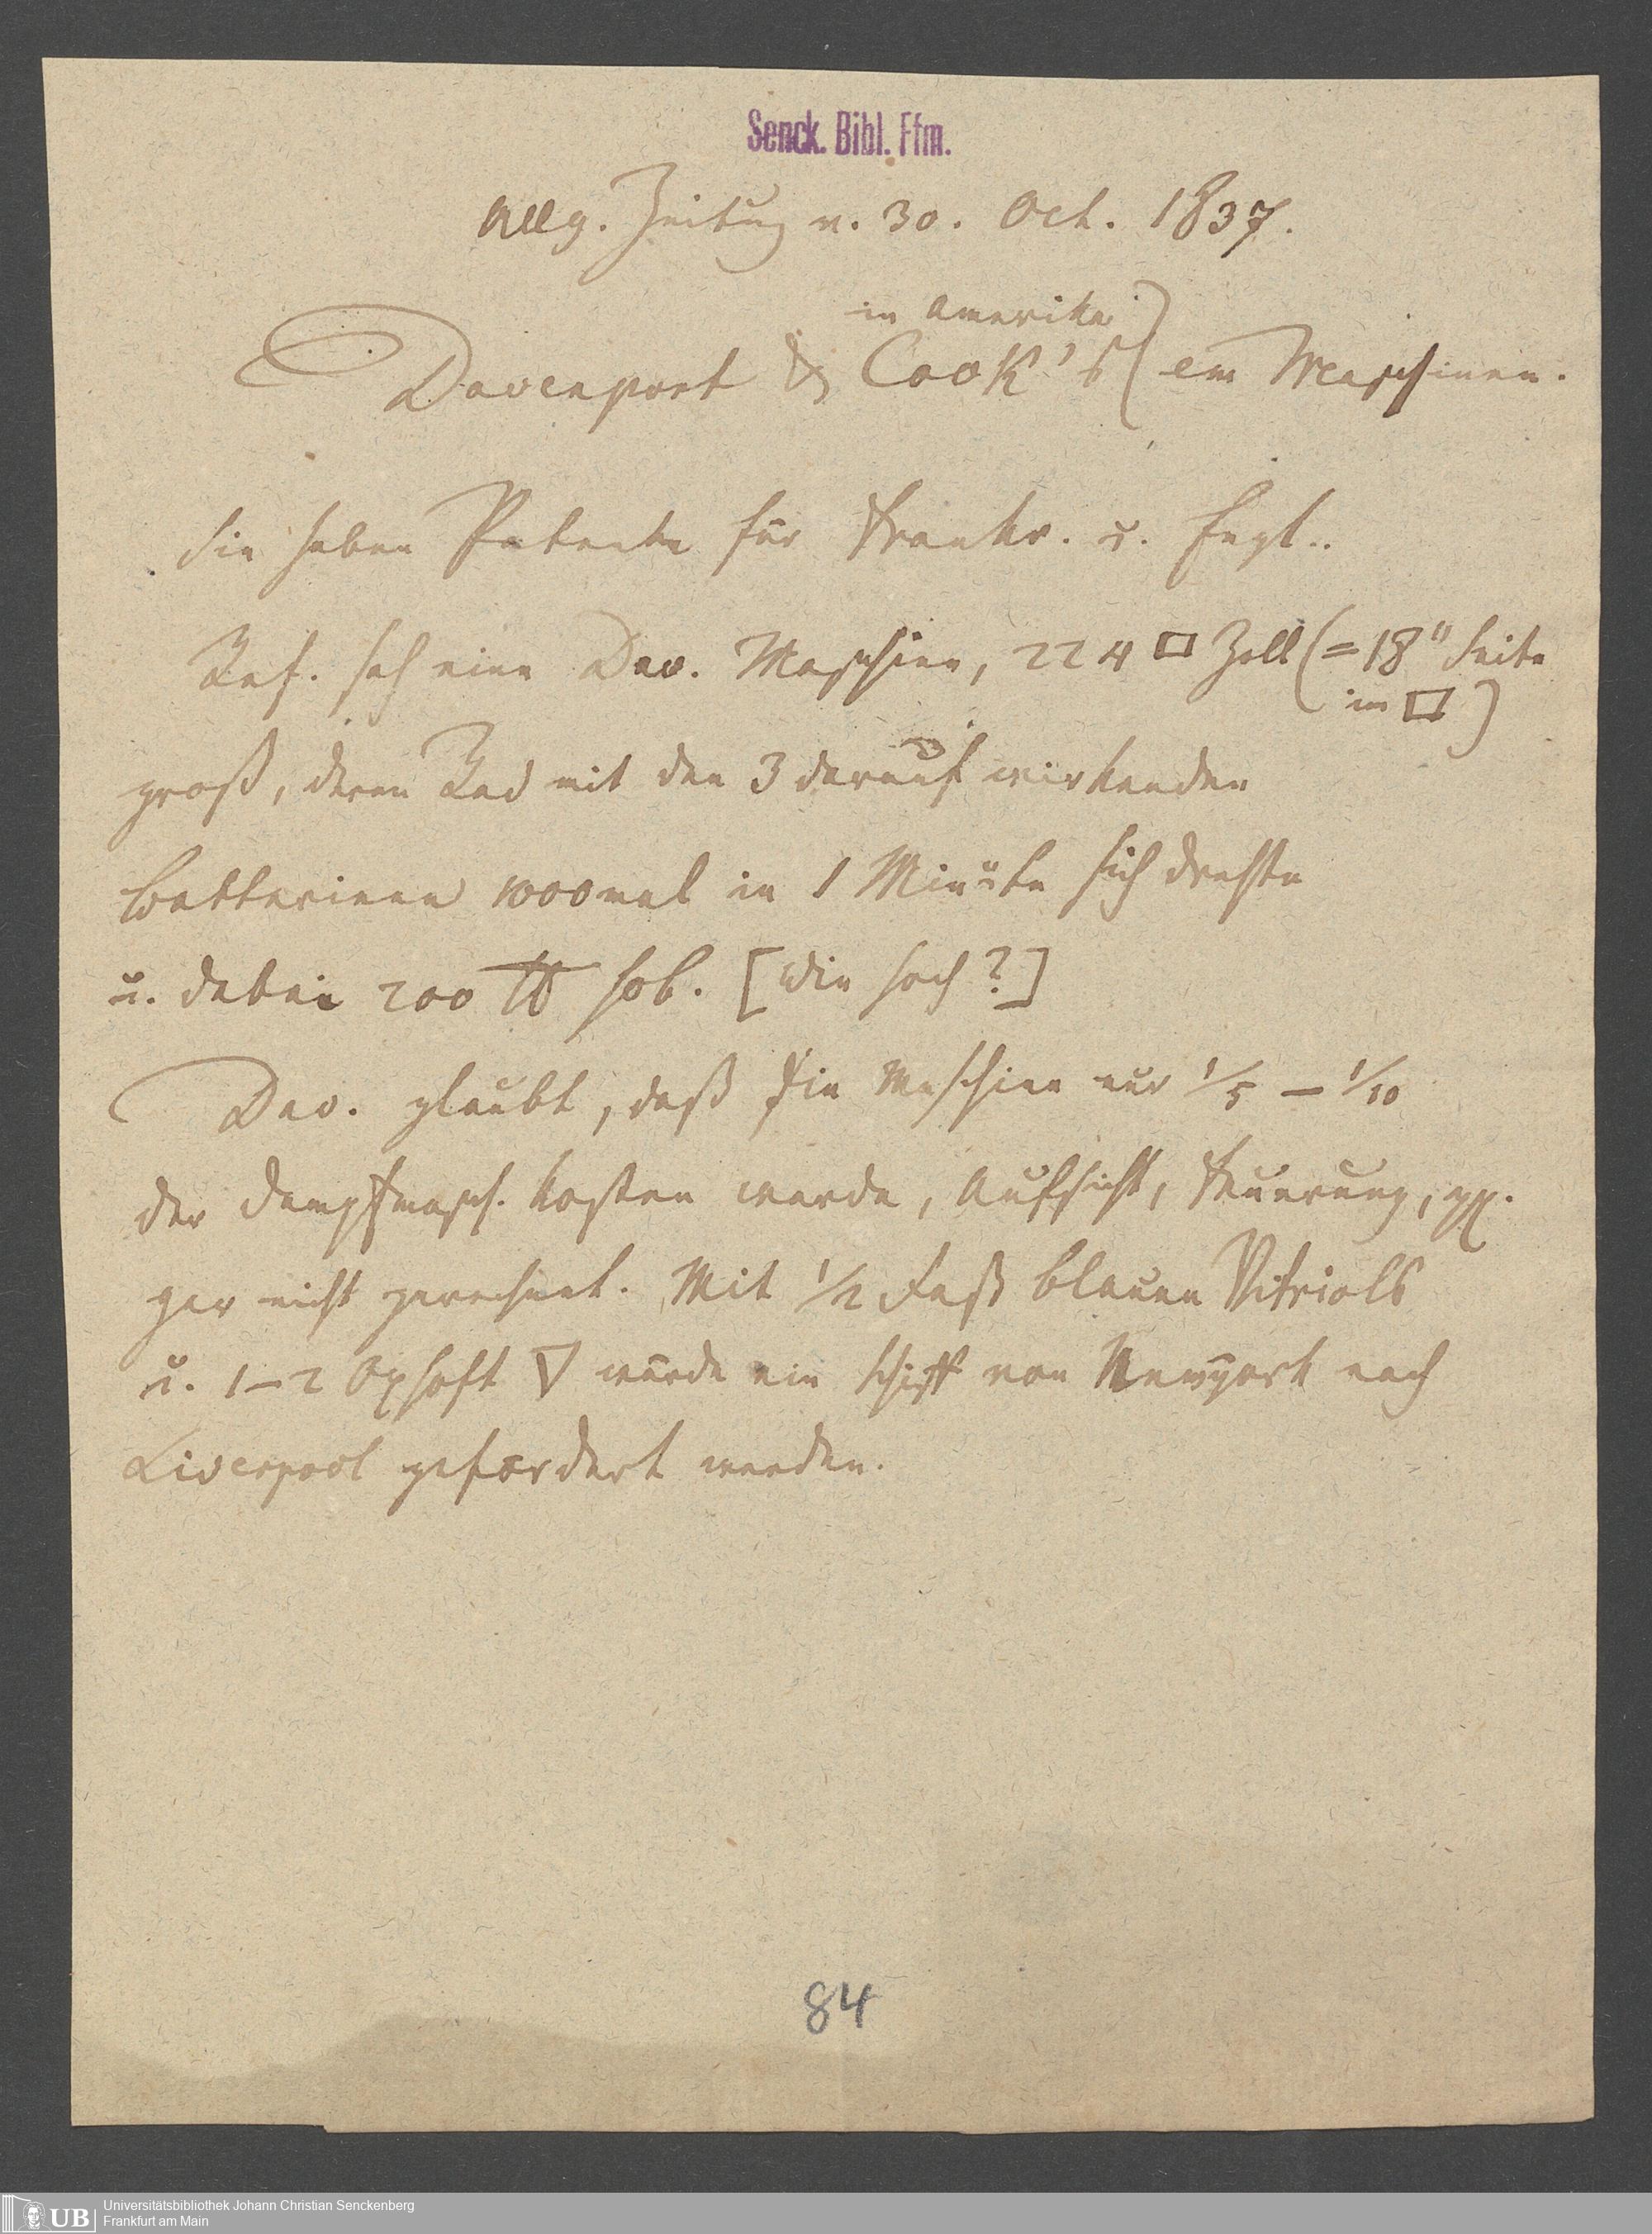 Senck. Bibl. Ffm.
Allg. Zeitung v. 30. Oct. 1837.
in Amerika
Davenport & Cook's em Maschinen.
Sie haben Patente für Frankr. u. Engl..
Ref. sah eine Dav. Maschine, 224 □ Zoll (= 18" Seite
im □)
groß, deren Rad mit den 3 darauf wirkenden
Batterieen 1000mal in 1 Minute sich drehte
u. dabei 200 ℔ hob. [Wie hoch?]
Dav. glaubt, daß die Maschine nur 1/5 – 1/10
der Dampfmasch. kosten werde, Aufsicht, Feuerung, pp.
gar nicht gerechnet. Mit 1/2 Faß blauen Vitriols
u. 1–2 Oxhoft ▽ würde ein Schiff von Newyork nach
Liverpool gefordert werden.
84
UB
Universitätsbibliothek Johann Christian Senckenberg
Frankfurt am Main